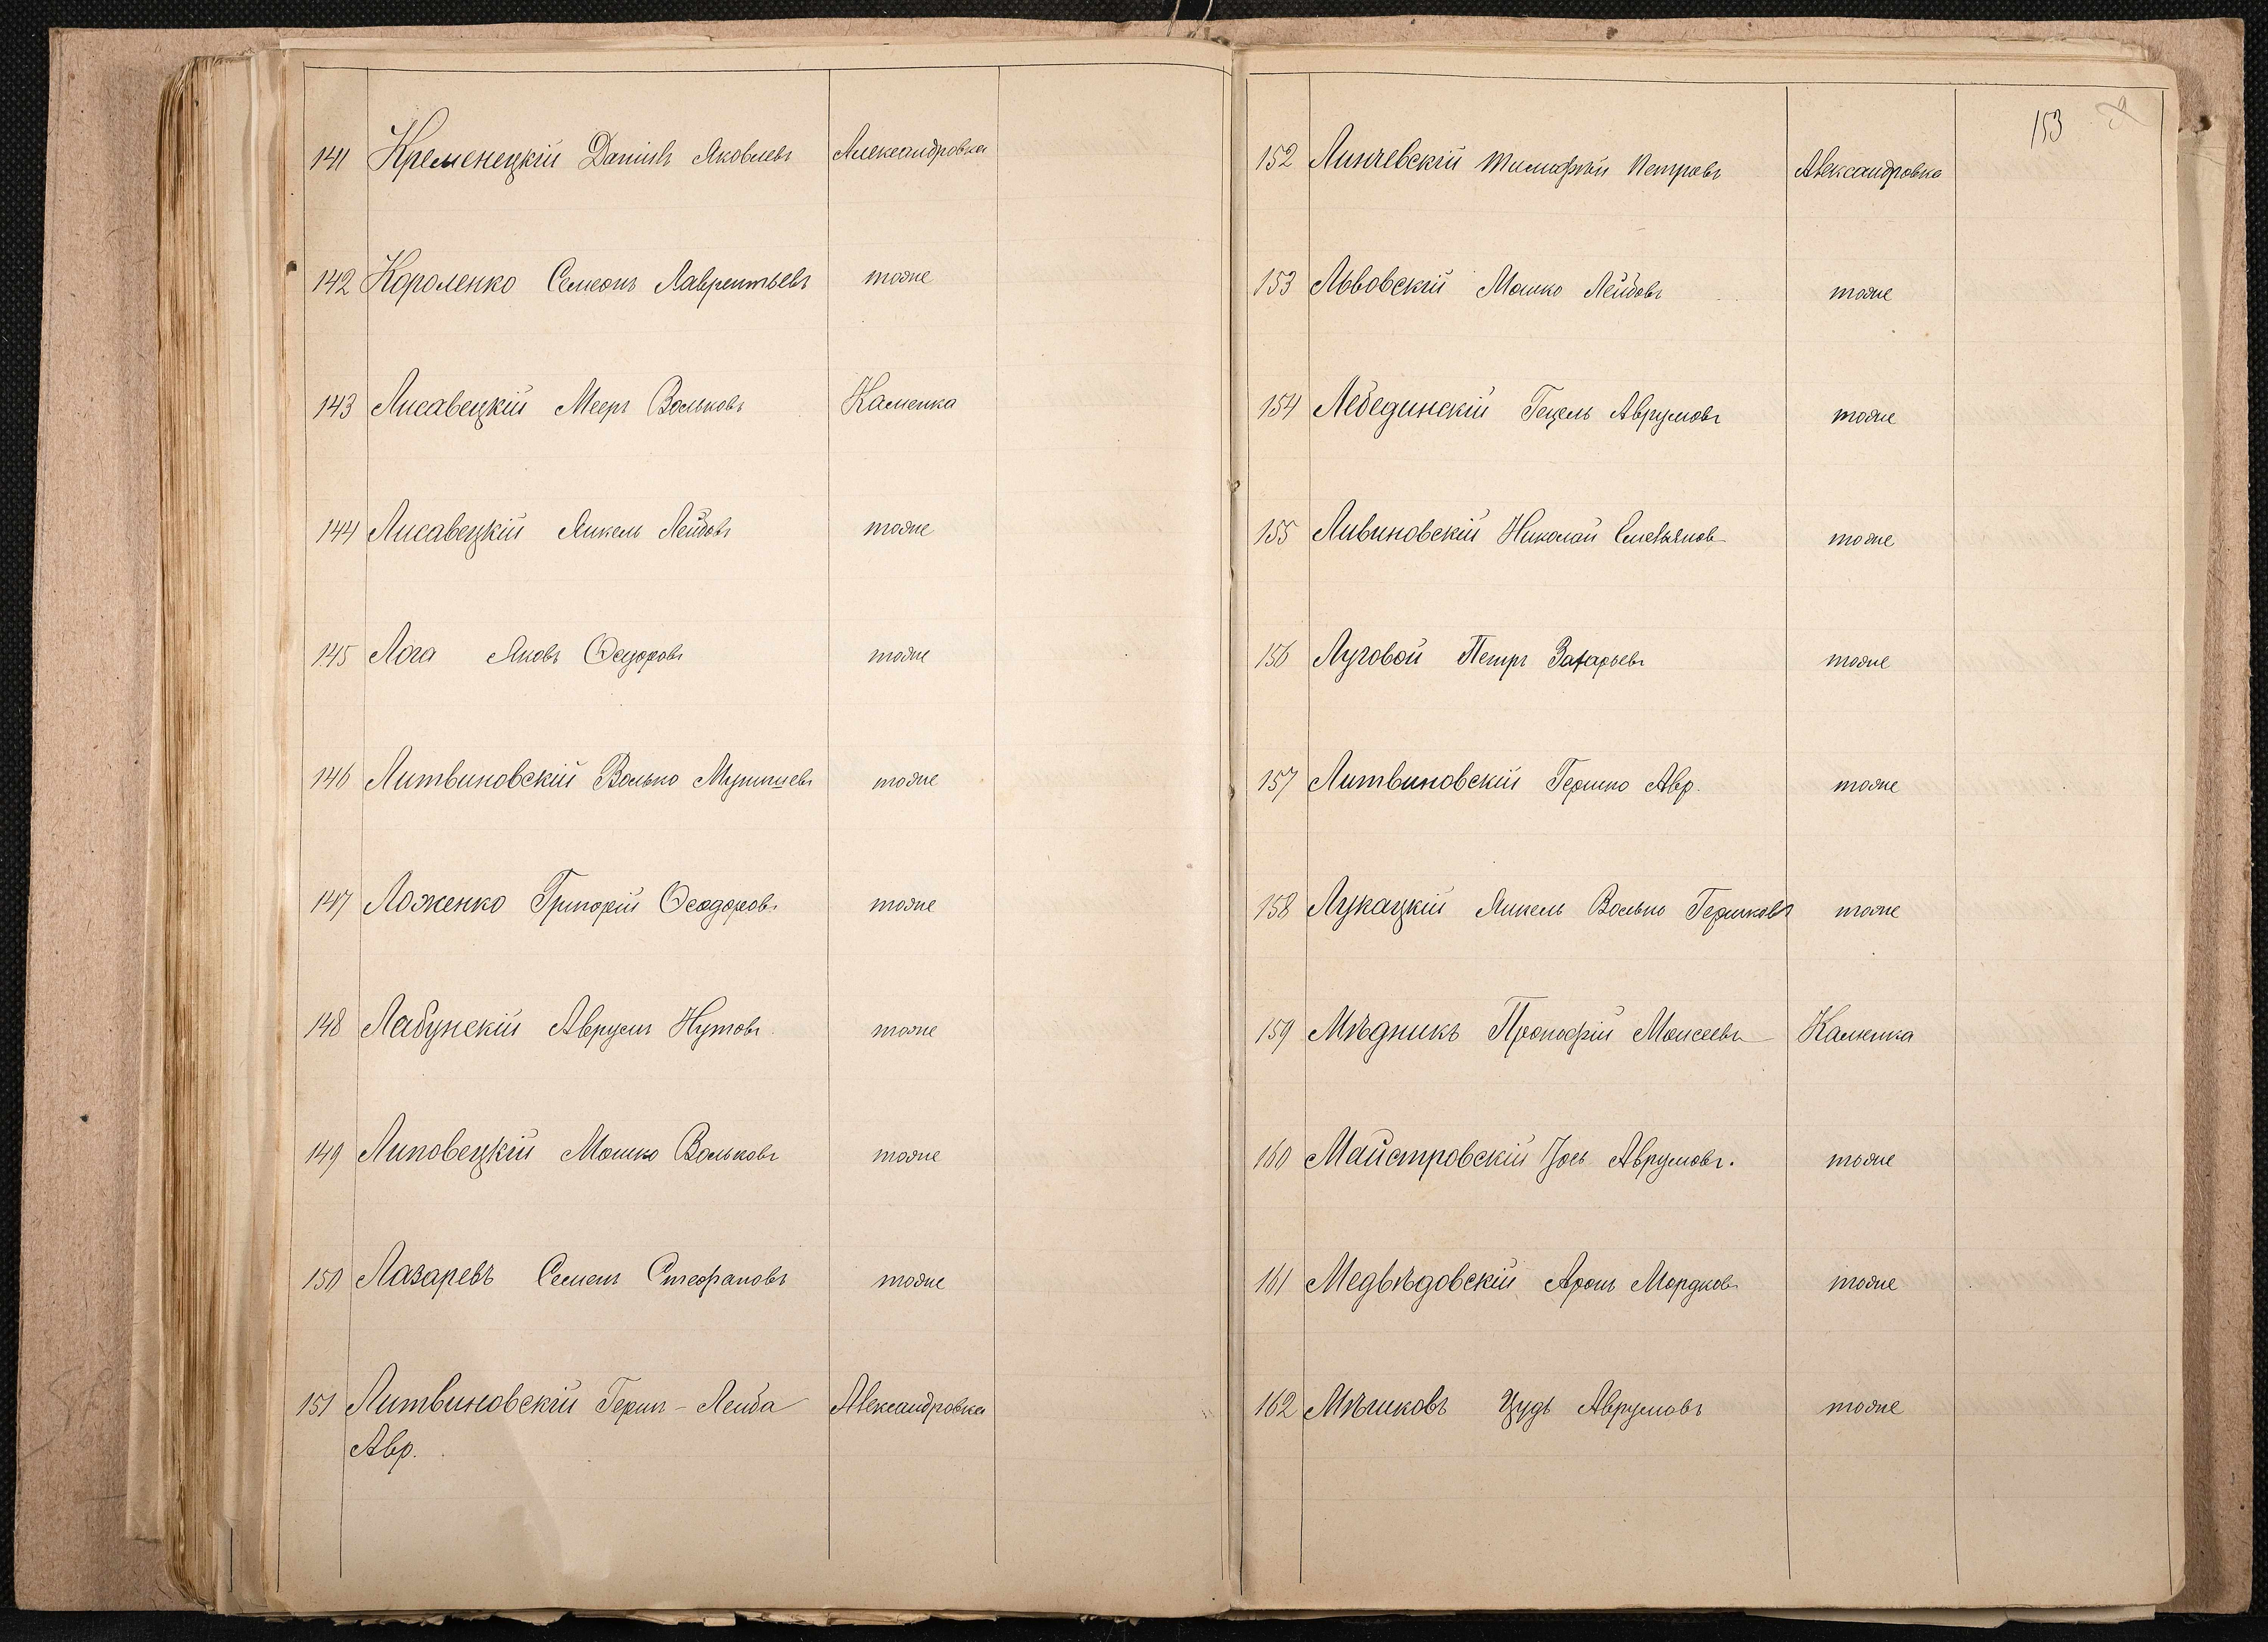 141 Кременецкій Даніилъ Яковлевъ Александровка
142 Короленко Семеонъ Лаврентьевъ тоже
143 Лисавецкій Мееръ Вольковъ Каменка
144 Лисавецкій Янкель Лейбовъ тоже
145 Лога Яковъ Ѳедоровъ тоже
146 Литвиновскій Волько тоже
147 Ложенко Григорій Ѳеодоровъ тоже
148 Лабунскій Аврумъ Нутовъ тоже
149 Липовецкій Мошко Вольковъ тоже
150 Лазаревъ Семенъ Стефановъ тоже
151 Литвиновскій Герш-Лейба Александровка
Авр.
153
152 Линчевскій Тимофѣй Петровъ Александровка
153 Львовскій Мошко Лейбовъ тоже
154 Лебединскій Гецель Аврумовъ тоже
155 Ливиновскій Николай Емельянов тоже
156 Луговой Петръ Захарьевъ тоже
157 Литвиновскій Гершко Авр. тоже
158 Лукацкій Янкель Волько Гершковъ тоже
159 Мѣдникъ Прокофій Моисеевъ Каменка
160 Майстровскій Іось Аврумовъ. тоже
161 Медвѣдовскій Аронъ Мордков тоже
162 Мѣшковъ Цудь Аврумовъ тоже